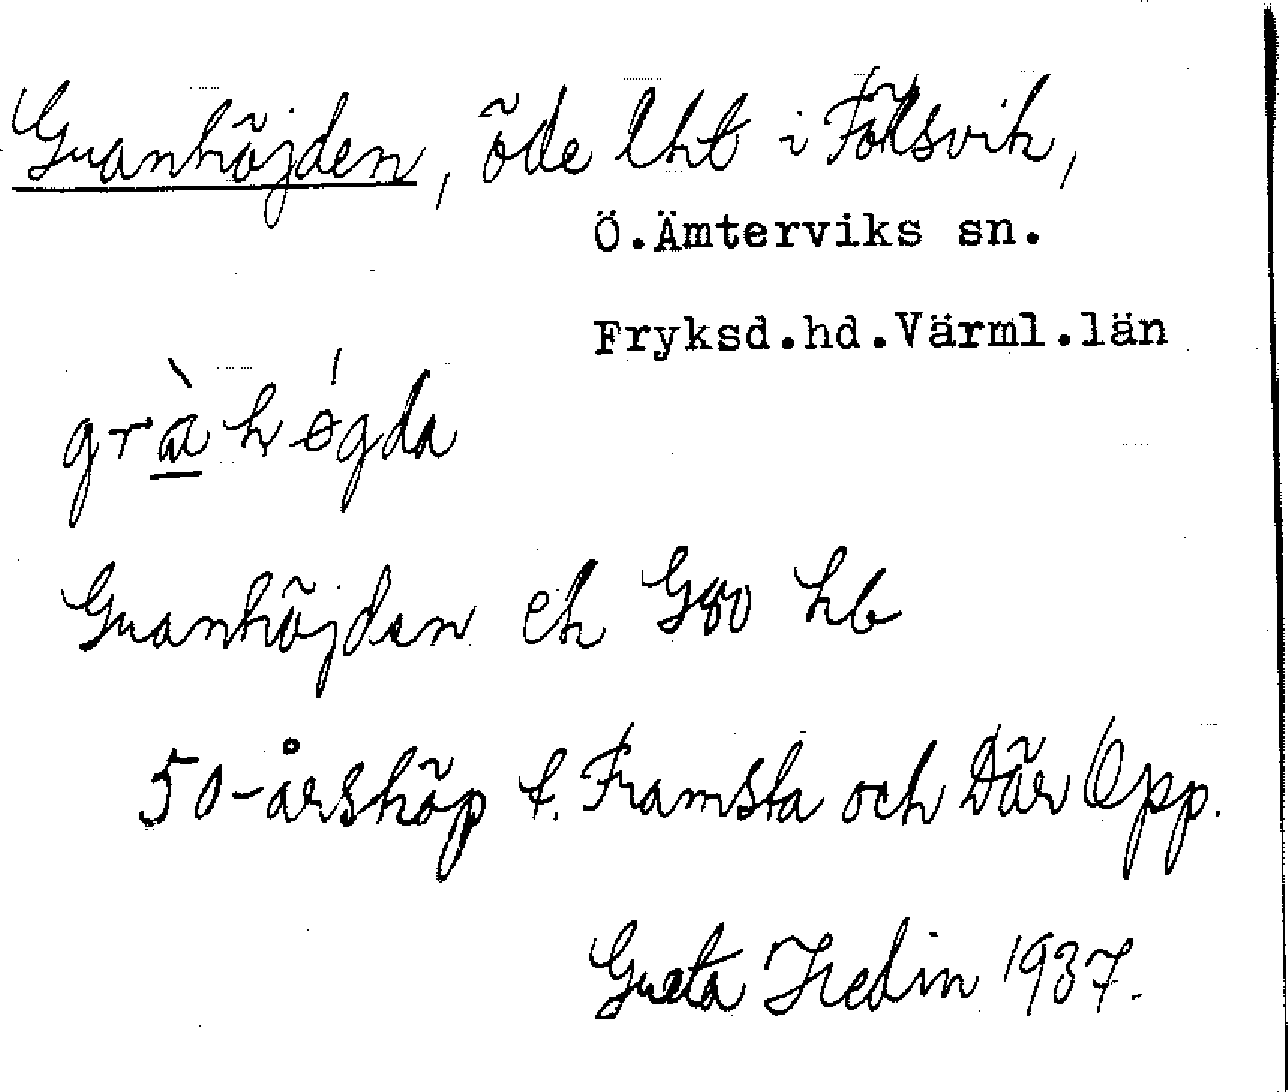 Granhöjden, öde lht i Fölsvik,
Ö.Ämterviks sn.
Fryksd.hd.Värml.län
gràhǿgda
Granhöjden ek G80 hb
50-årsköp t. Framsta och Där Opp.
Greta Hedin 1937.